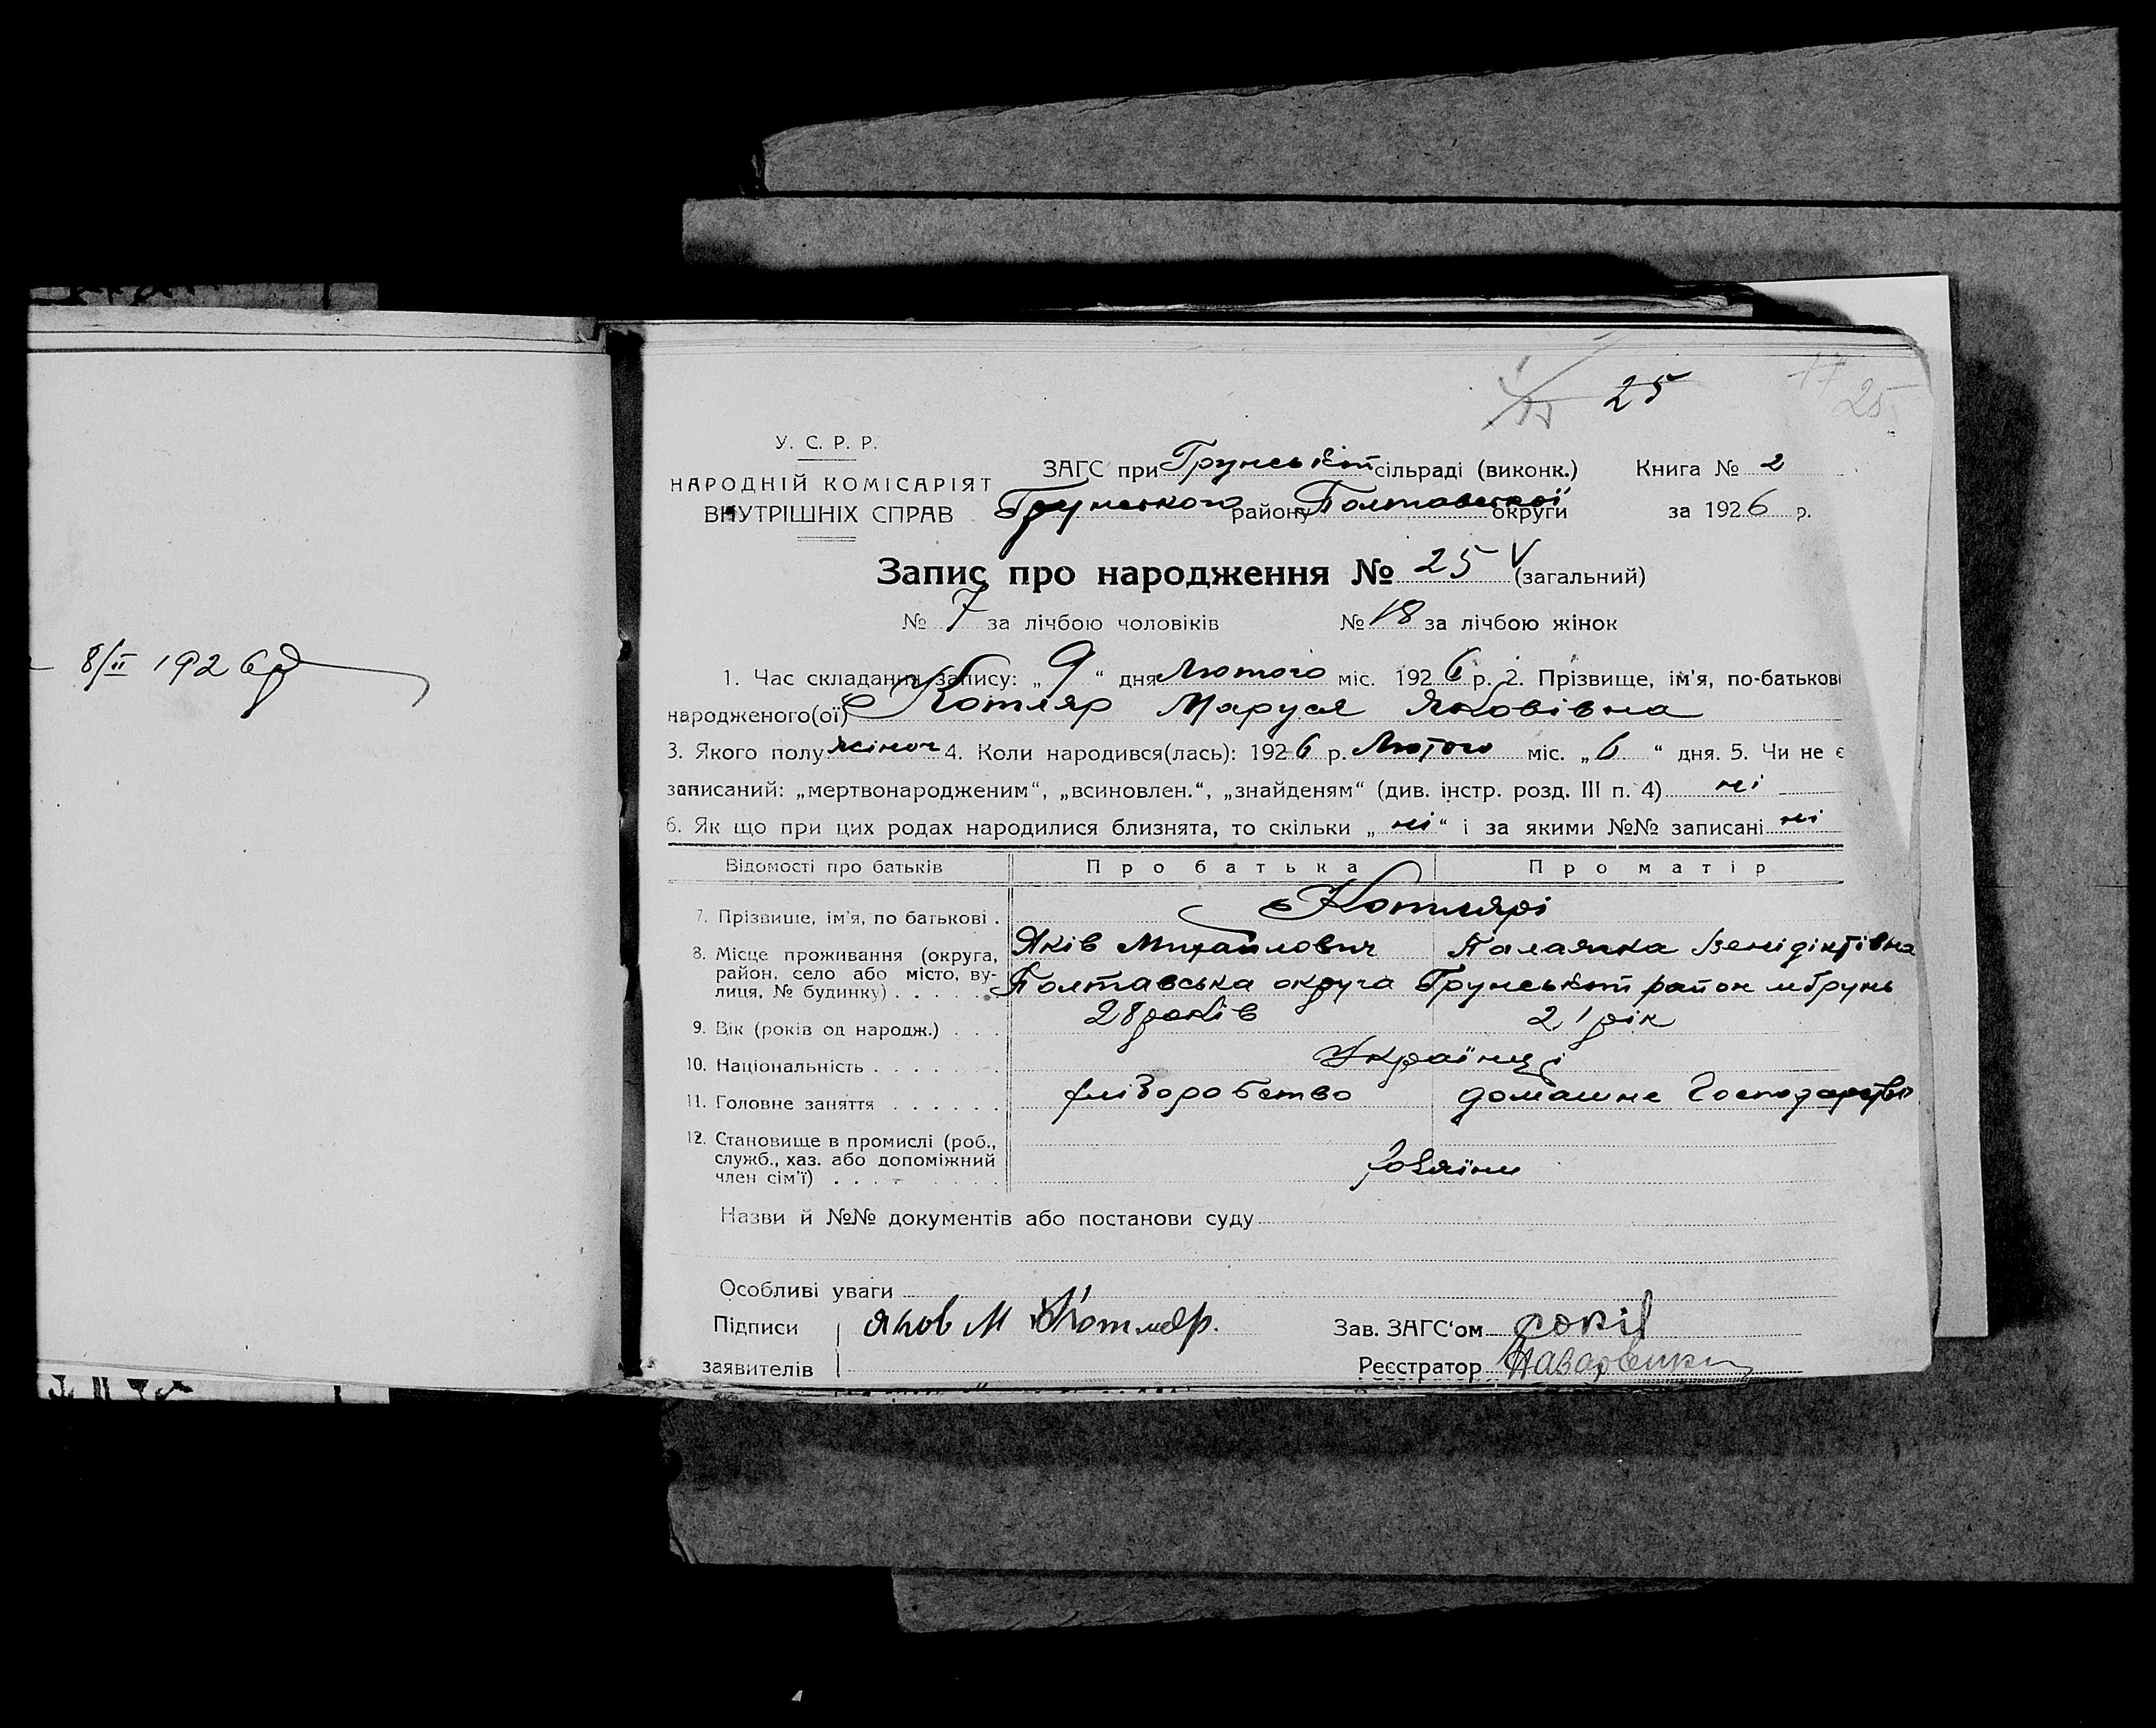 8/II 1926р
25
25
У. С. Р. Р.
НАРОДНІЙ КОМІСАРІЯТ
ВНУТРІШНІХ СПРАВ
ЗАГС при Грунській сільраді (виконк.) Книга № 2
Грунського району Полтавської округи за 1926 р.
Запис про народження № 25 V (загальний)
№ 7 за лічбою чоловіків № 18 за лічбою жінок
1. Час складання запису: „ 9 “ дня Лютого міс. 1926 р. 2. Прізвище, ім'я, по-батькові
народженого(ої) Котляр Маруся Яковівна
3. Якого полу жіноч 4. Коли народився(лась): 1926 р. Лютого міс. „ 6 “ дня. 5. Чи не є
записаний: „мертвонародженим“, „всиновлен.“, „знайденям“ (див. інстр. розд. III п. 4) ні
6. Як що при цих родах народилися близнята, то скільки „ ні “ і за якими №№ записані ні
Відомості про батьків Про батька Про матір
7. Прізвище, ім'я, по батькові . Котлярі
Яків Михайлович Палажка Венідіктівна
8. Місце проживання (округа,
район, село або місто, ву-
лиця, № будинку) . . . . . Полтавська округа Грунський район м Грунь
9. Вік (років од народж.) . . . 28 років 21 рік
10. Національність . . . . . . . Українці
11. Головне заняття . . . . . . хліборобство домашнє Господарство
12. Становище в промислі (роб.,
служб., хаз. або допоміжний
член сім'ї) . . . . . . . . . хозяїни
Назви й №№ документів або постанови суду
Особливі уваги
Підписи Яков М Котляр. Зав. ЗАГС'ом
заявителів Реєстратор